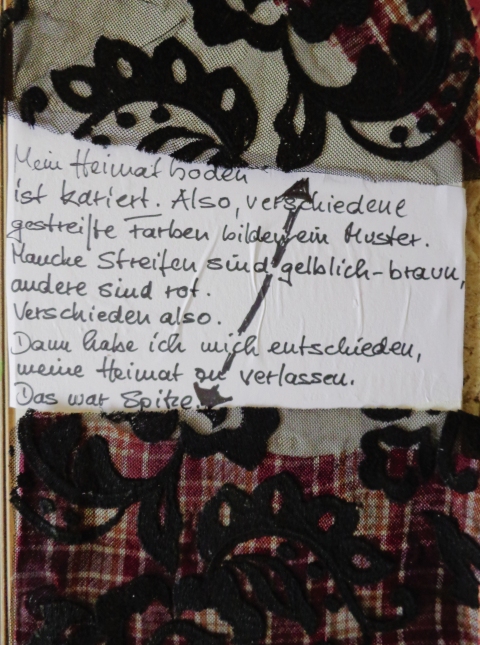 Mein Heimatboden
ist kariert. Also, verschiedene
gestreifte Farben bilden ein Muster.
Manche Streifen sind gelblich-braun,
andere sind rot.
Verschieden also.
Dann habe ich mich entschieden,
meine Heimat zu verlassen.
Das war Spitze.